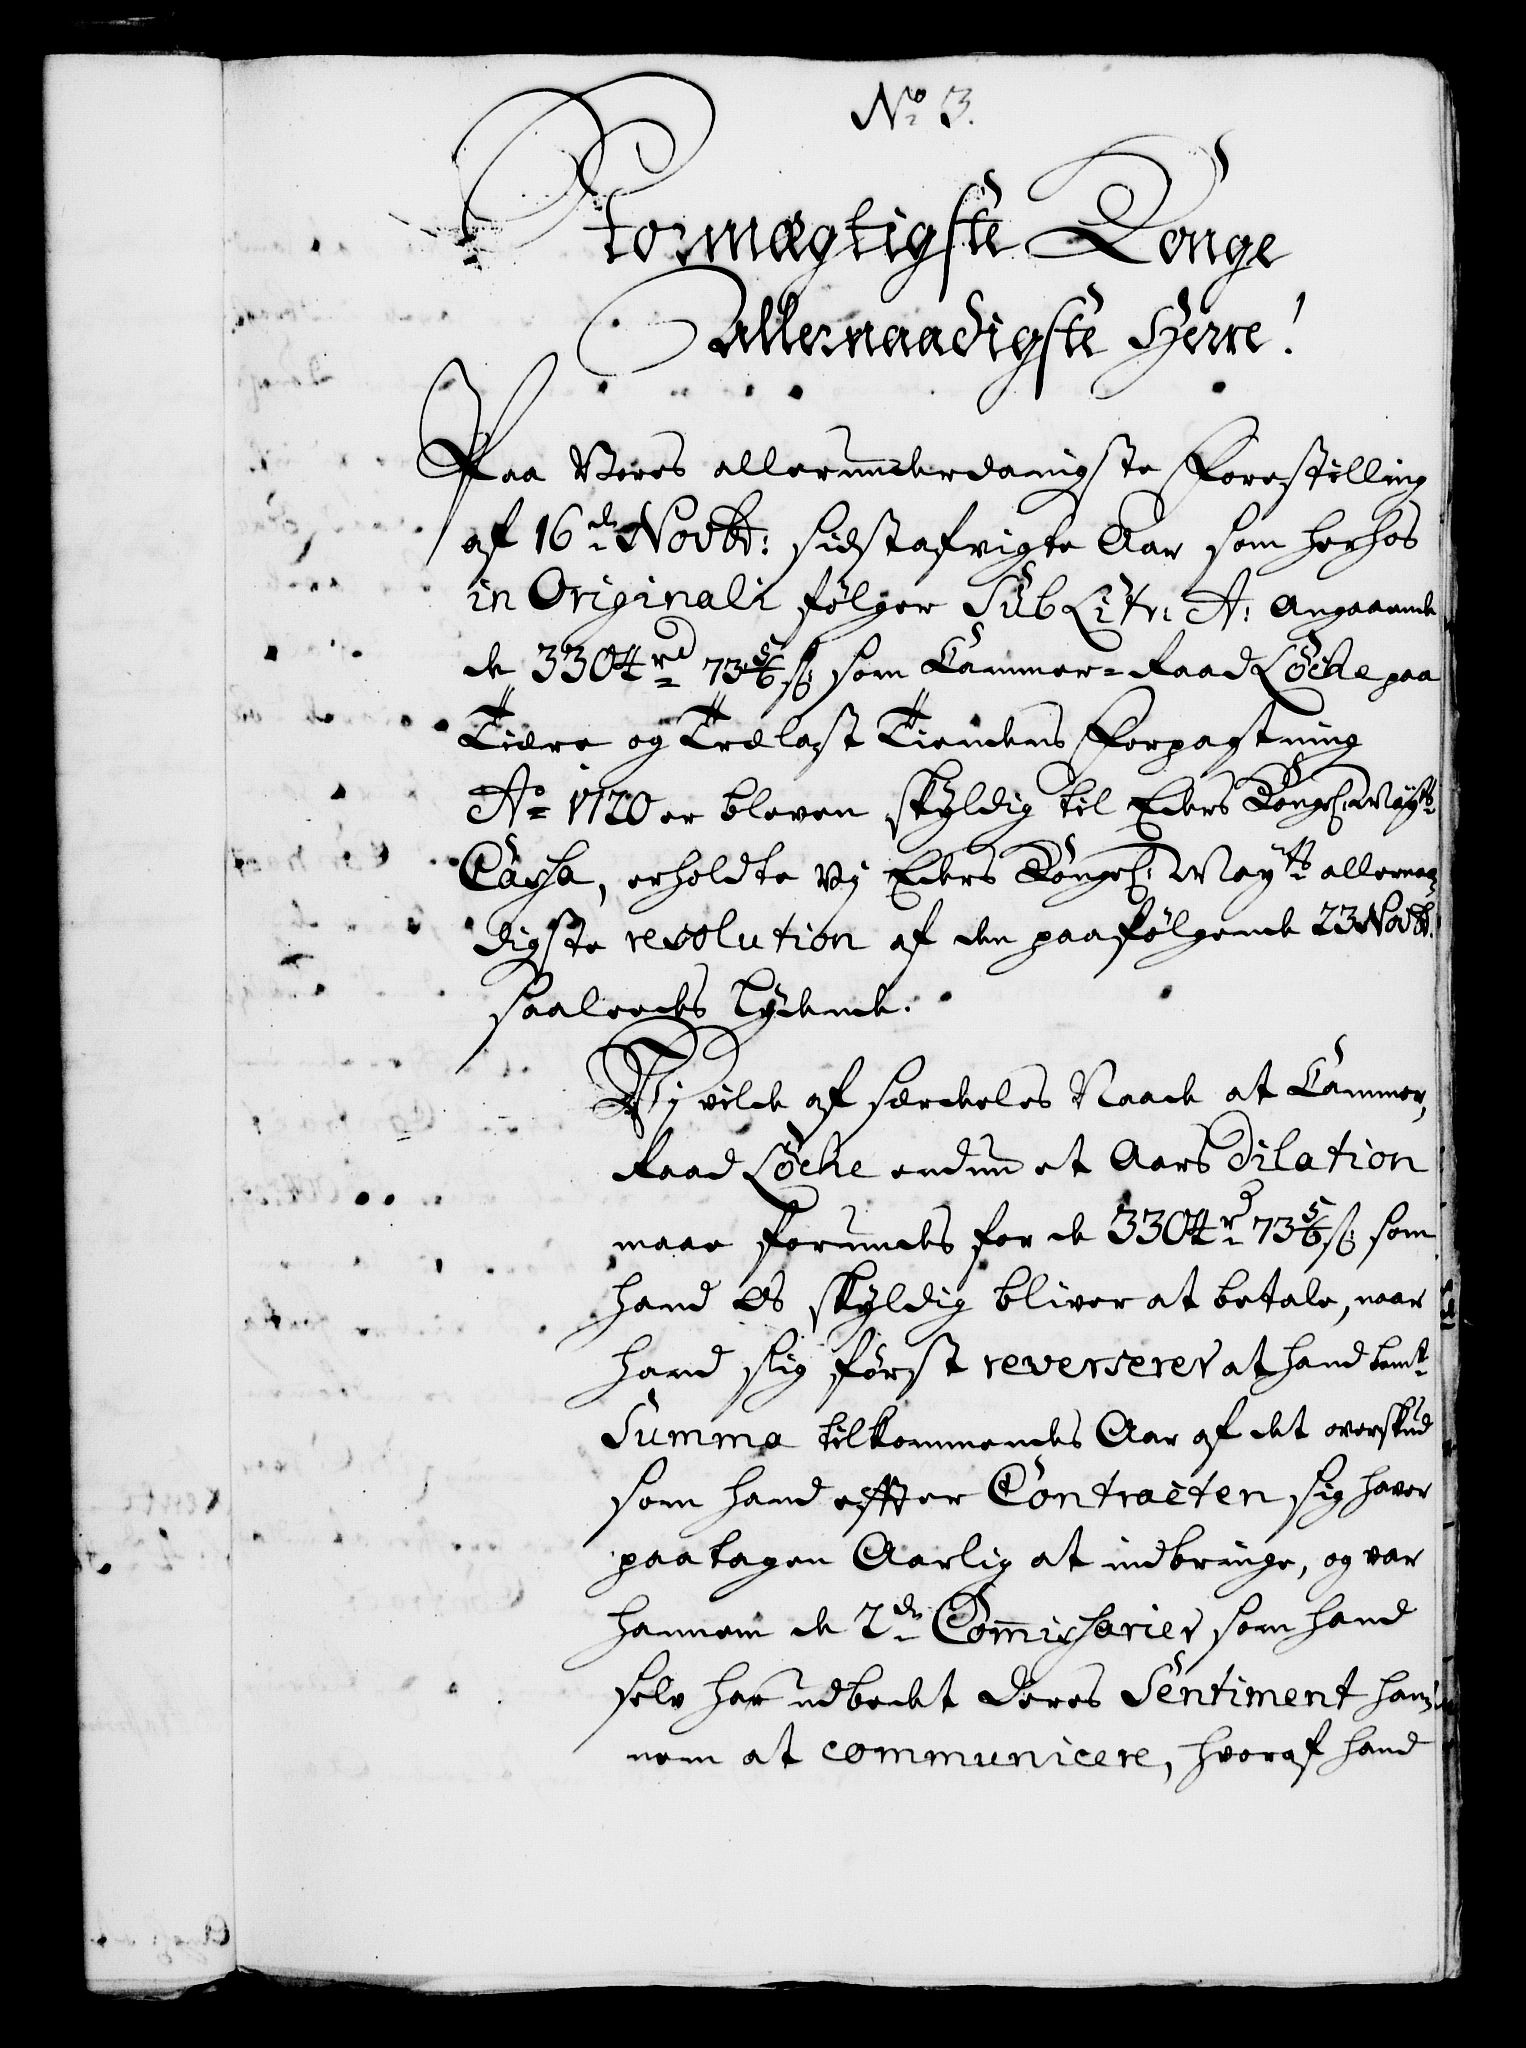 No 3.
Stormægtigste Konge
Allernaadigste Herre!
Paa Vores allerunderdanigste Forestilling
af 16de Novbr: sidstafvigte Aar som herhos
in Originali følger Sub Litr: A: angaaende
de 3304 rd 73 5/6 ß som Cammer-Raad Löcke paa
Tiære og Trælast Tiendens Forpagtning
Ao 1720 er bleven skyldig til Eders Kongel: Mayts
Cassa, erholdte Vy Eders Kongel: Mayts allernaa-
digste resolution af den paafølgende 23 Novbr:
saaleedes lydende.
Vy vilde af særdeles Naade at Cammer-
Raad Löcke endnu et Aars Dilation
maae forundes for de 3304 rd 73 5/6 ß som
hand Os skyldig bliver at betale, naar
hand sig først reverserer at hand bemte
Summa tilkommendes Aar af det overskud
som hand effter Contracten sig haver
paatagen Aarlig at indbringe, og var
hannem de 2de Commissarier som hand
selv har udbedet deres Sentiment han-
nem at communicere, hvoraf hand